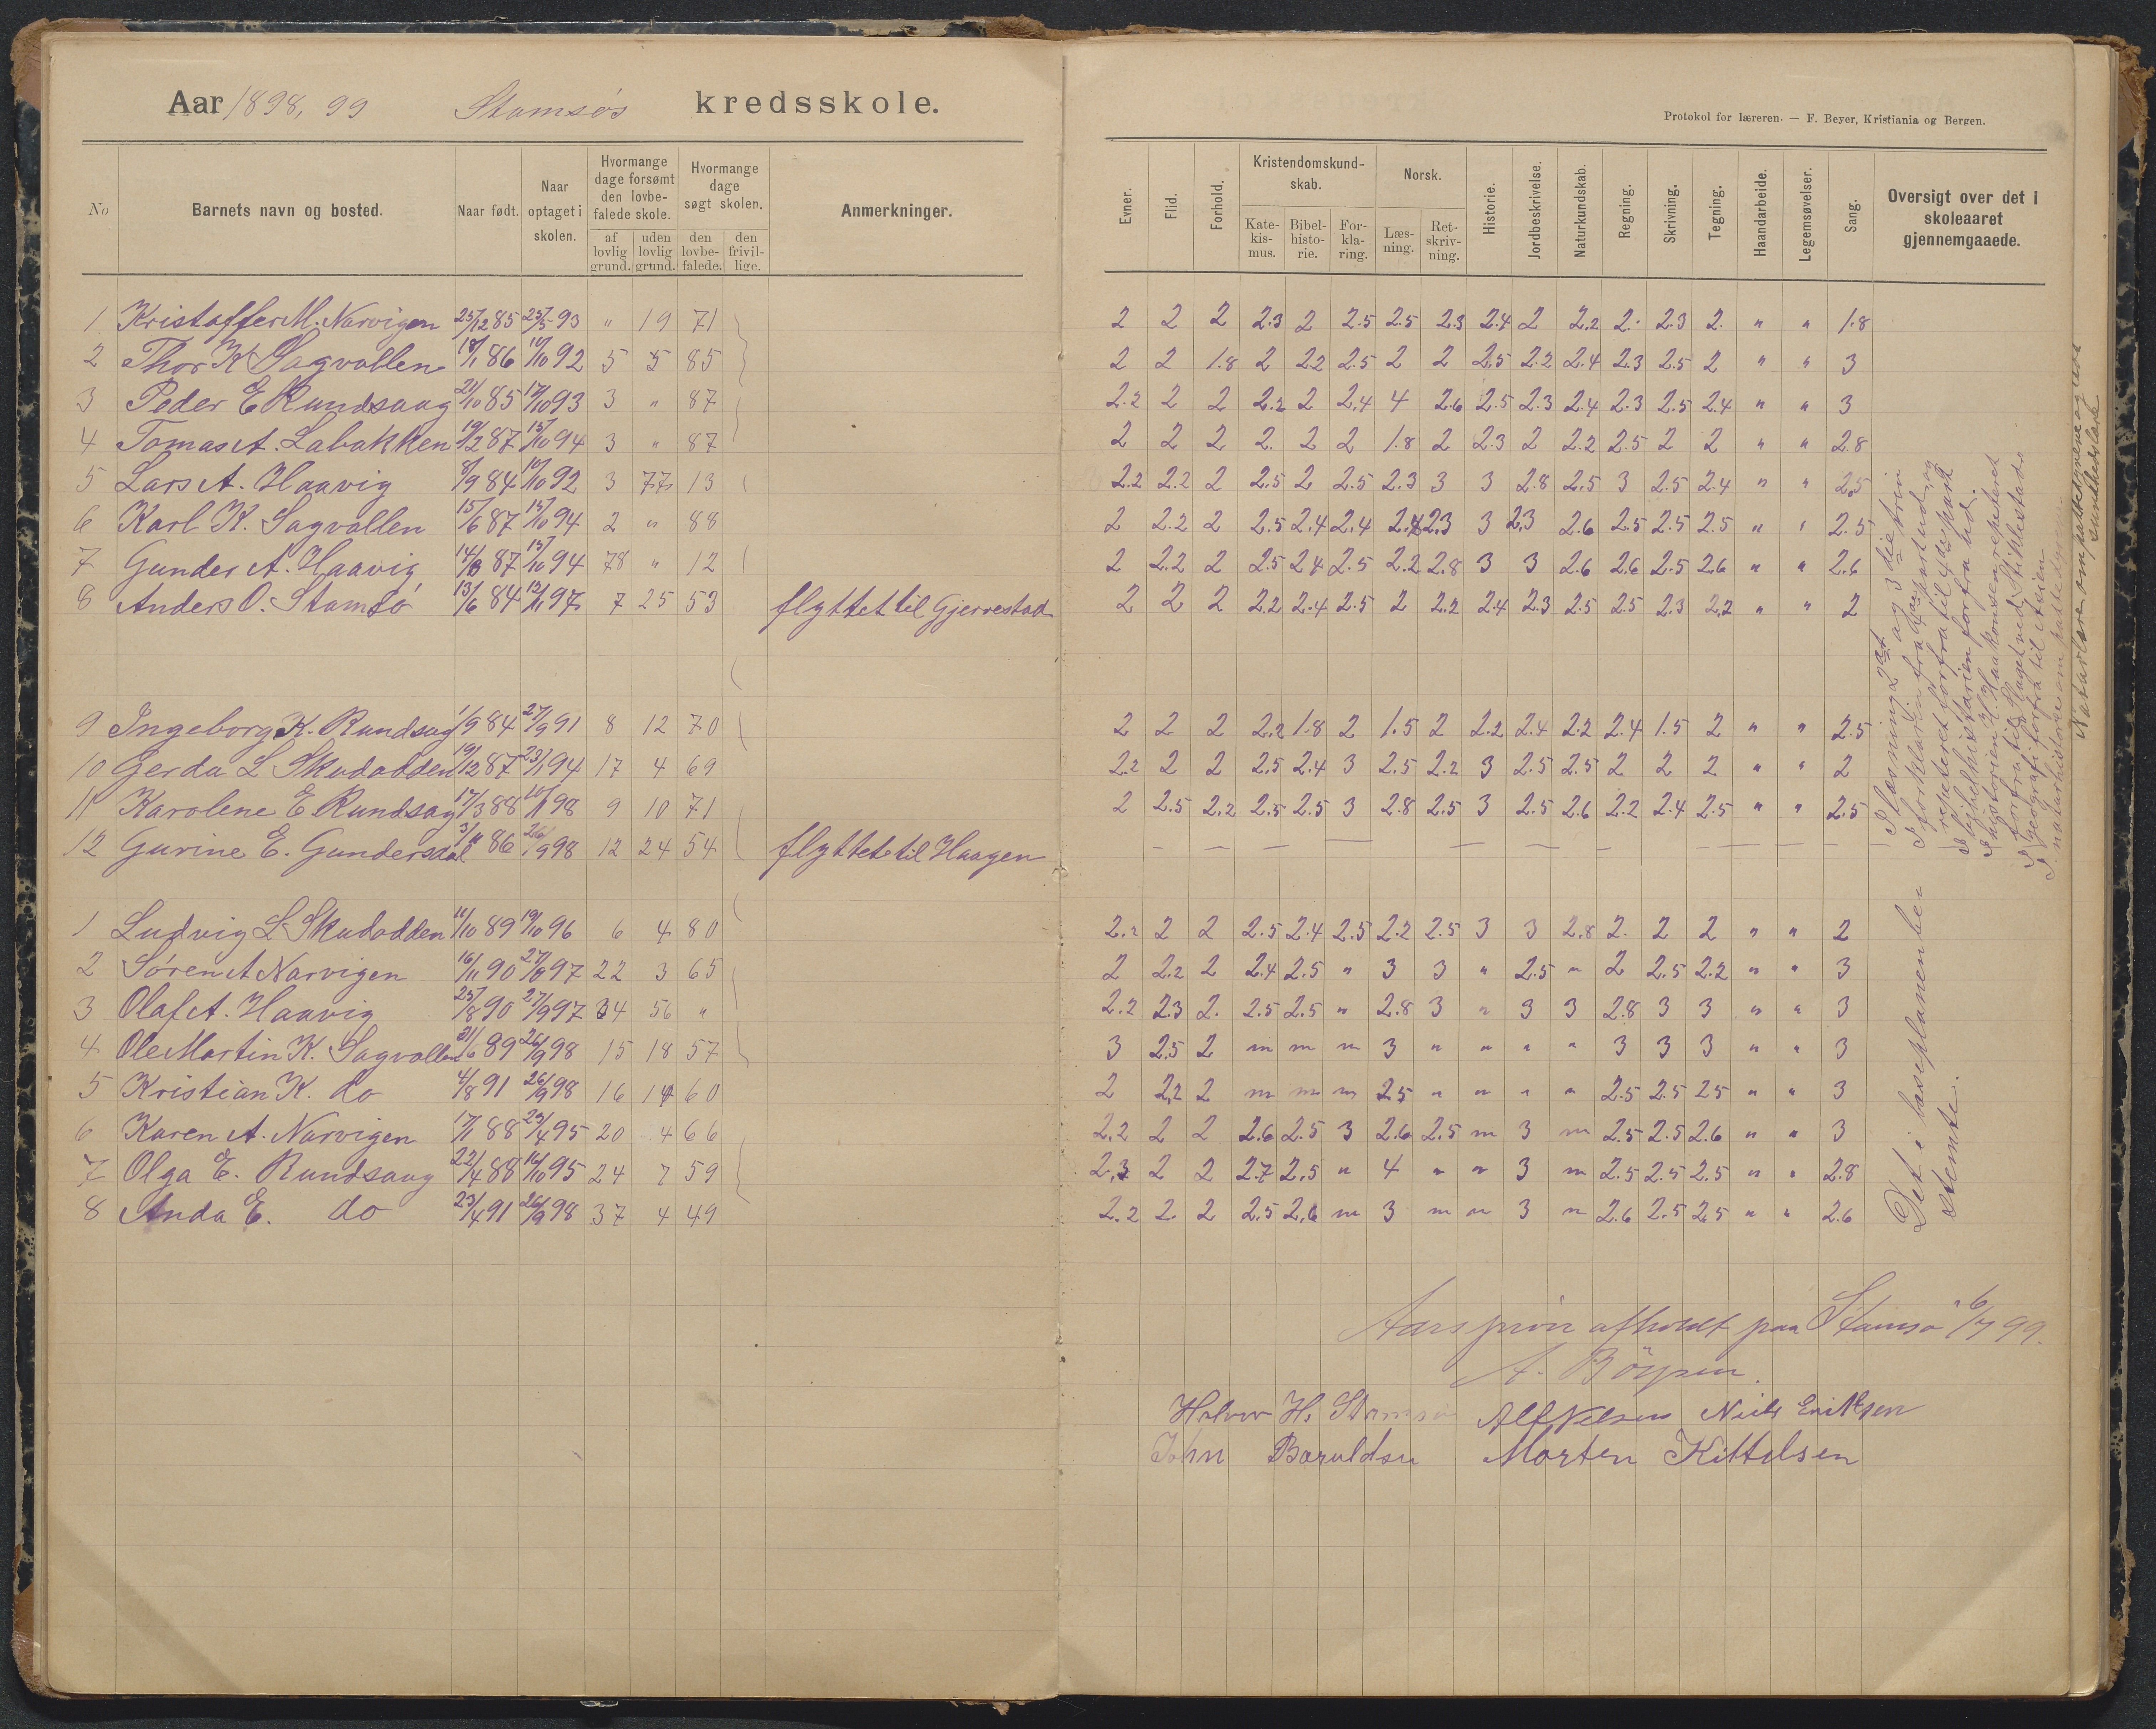 Aar 1898, 99 Stamsøs kredsskole.
No
Barnets navn og bosted.
Naar født.
Naar optaget i skolen.
Hvormange dage forsømt den lovbefalede skole.
af lovlig grund.
uden lovlig grund.
Hvormange dage søgt skolen.
den lovbefalede.
den frivillige.
Anmerkninger.
1 Kristoffer M. Narvigen 25/12 85 25/5 93 " 19 71
2 Thor K Sagvollen 18/1 86 10/10 92 5 5 85
3 Peder E Rundsaag 21/10 85 17/10 93 3 " 87
4 Tomas A. Labakken 19/2 87 15/10 94 3 " 87
5 Lars A. Haavig 8/9 84 10/10 92 3 77 13
6 Karl K. Sagvollen 15/6 87 15/10 94 2 " 88
7 Gunder A. Haavig 87 15/10 94 78 " 12
8 Anders O. Stamsø 13/6 84 97 7 25 53 flyttet til Gjerrestad
9 Ingeborg K. Rundsag 1/9 84 27/9 91 8 12 70
10 Gerda L Skudodden 19/12 87 94 17 4 69
11 Karolene E Rundsag 17/3 88 98 9 10 71
12 Gurine E. Gundersdal 86 26/9 98 12 24 54 flyttet til Haagen
1 Ludvig L Skudodden 11/10 89 19/10 96 6 4 80
2 Søren A Narvigen 16/11 90 27/9 97 22 3 65
3 Olaf A. Haavig 25/8 90 27/9 97 34 56 "
4 Ole Martin K. Sagvollen 89 26/9 98 15 18 57
5 Kristian K. do 4/8 91 26/9 98 16 14 60
6 Karen A. Narvigen 17/1 88 23/4 95 20 4 66
7 Olga E. Rundsaag 22/4 88 16/10 95 24 7 59
8 Anda E. do 23/4 91 26/9 98 37 4 49
Protokol for læreren. — F. Beyer, Kristiania og Bergen.
Evner.
Flid.
Forhold.
Kristendomskundskab.
Katekismus.
Bibelhistorie.
Forklaring.
Norsk.
Læsning.
Retskrivning.
Historie.
Jordbeskrivelse.
Naturkundskab.
Regning.
Skrivning.
Tegning.
Haandarbeide.
Legemsøvelser.
Sang.
Oversigt over det i skoleaaret gjennemgaaede.
2 2 2 2.3 2 2.5 2.5 2.3 2.4 2 2.2 2. 2.3 2. " " 1.8
2 2 1.8 2 2.2 2.5 2 2 2.5 2.2 2.4 2.3 2.5 2 " " 3
2.2 2 2 2.2 2 2.4 4 2.6 2.5 2.3 2.4 2.3 2.5 2.4 " " 3
2 2 2 2. 2 2 1.8 2 2.3 2 2.2 2.5 2 2 " " 2.8
2.2 2.2 2 2.5 2 2.5 2.3 3 3 2.8 2.5 3 2.5 2.4 " " 2.5
2 2.2 2 2.5 2.4 2.4 2.4 2.3 3 2.3 2.6 2.5 2.5 2.5 " " 2.5
2 2.2 2 2.5 2.4 2.5 2.2 2.8 3 3 2.6 2.6 2.5 2.6 " " 2.6
2 2 2 2.2 2.4 2.5 2 2.2 2.4 2.3 2.5 2.5 2.3 2.2 " " 2
2 2 2 2.2 1.8 2 1.5 2 2.2 2.4 2.2 2.4 1.5 2 " " 2.5
2.2 2 2 2.5 2.4 3 2.5 2.2 3 2.5 2.5 2 2 2 " " 2
2 2.5 2.2 2.5 2.5 3 2.8 2.5 3 2.5 2.6 2.2 2.4 2.5 " " 2.5
2.2 2 2 2.5 2.4 2.5 2.2 2.5 3 3 2.8 2. 2 2 " " 2
2 2.2 2 2.4 2.5 " 3 3 " 2.5 " 2 2.5 2.2 " " 3
2.2 2.3 2. 2.5 2.5 " 2.8 3 " 3 3 2.8 3 3 " " 3
3 2.5 2 " " " 3 " " " " 3 3 3 " " 3
2 2.2 2 " " " 2.5 " " " " 2.5 2.5 25 " " 3
2.2 2 2 2.6 2.5 3 2.6 2.5 " 3 " 2.5 2.5 2.6 " " 3
2.3 2 2 2.7 2.5 " 4 " " 3 " 2.5 2.5 2.5 " " 2.8
2.2 2 2 2.5 2.6 " 3 " " 3 " 2.6 2.5 2.5 " " 2.6
I læsning 2 og 3 die trin
I forklaring fra part ud, og
repeteret forfra til 4de part
I bibelhistorien forfra ud.
I historien H. Haakonsen repeteret
forfra til slaget ved Stiklestad.
I geografi forfra til Asien
I naturhistorie om pattedyrene
Naturlære om
sundhedslære
Det i læseplanen bestemte.
Aarsprøve afholdt paa Stamsø 6/7 99.
Halvor H. Stamsø Alf Nelsen Niels Eriksen
John Baruldsen Morten Kittelsen